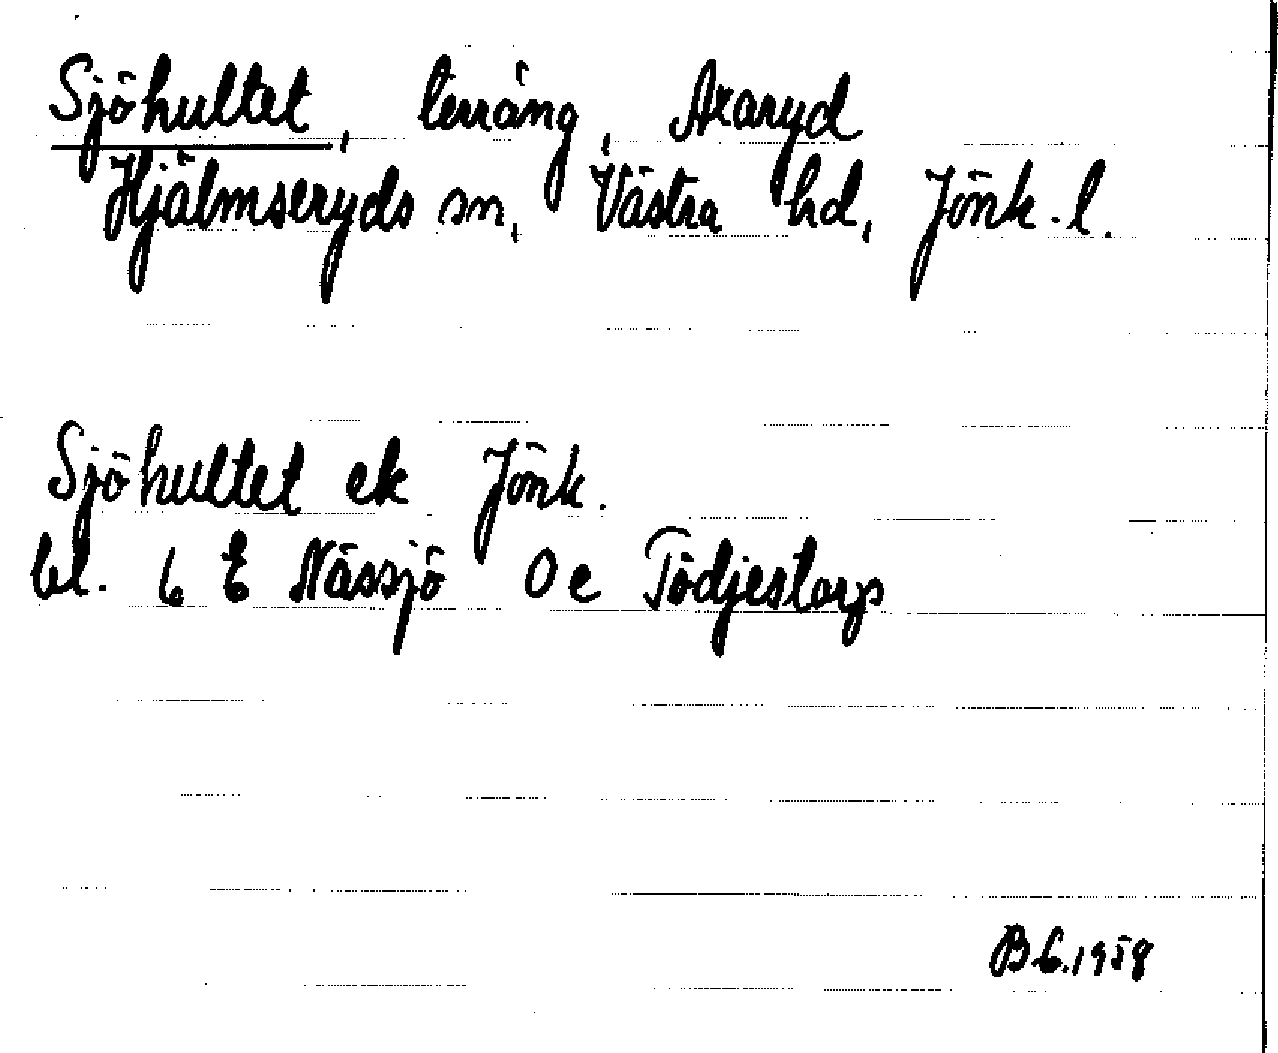 Sjöhultet, terräng, Axaryd
Hjälmseryds sn, Västra hd, Jönk. l.
Sjöhultet ek Jönk.
bl. 6 E Nässjö 0 e Tödjestorp
B G. 1958